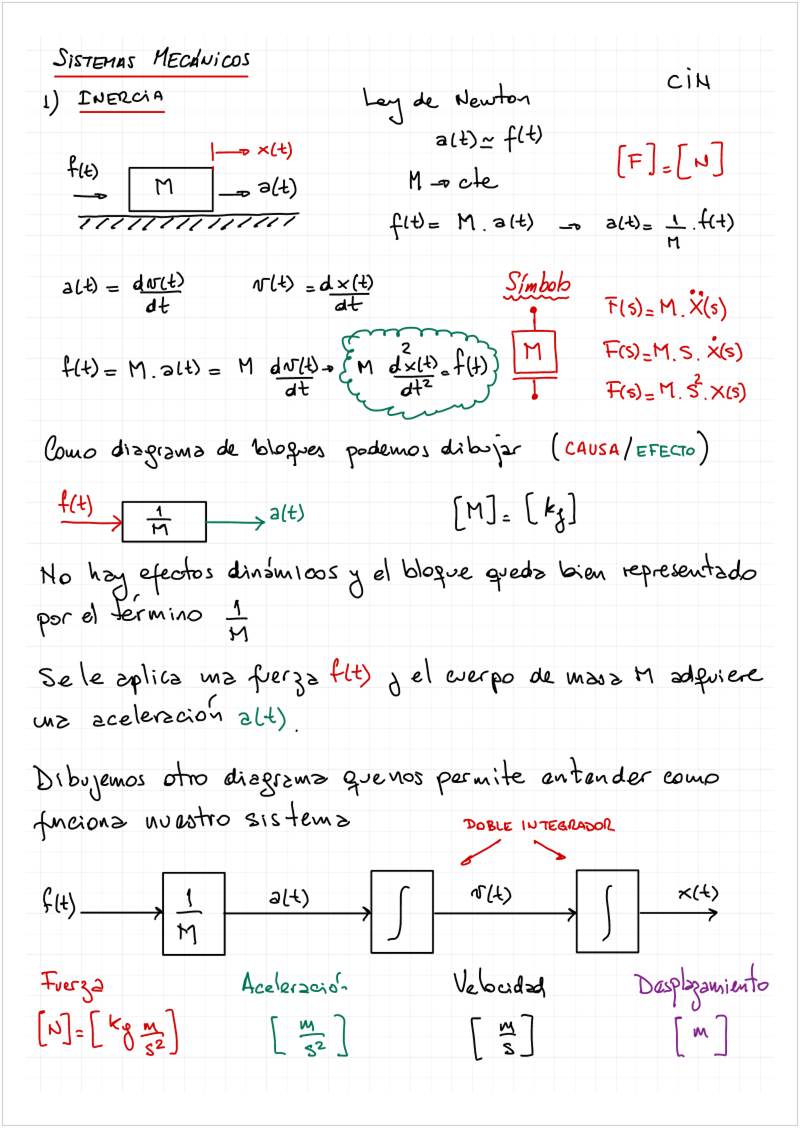 SISTEMAS MECÁNICOS
CIN
1) INERCIA
Ley de Newton
f(t) M x(t) a(t)
a(t) ≃ f(t)
[F] = [N]
M → cte
f(t) = M . a(t) → a(t) = 1/M . f(t)
a(t) = dv(t)/dt v(t) = dx(t)/dt
Símbolo
M
F(s) = M . Ẍ(s)
F(s) = M . S . Ẋ(s)
F(s) = M . S² . X(s)
f(t) = M . a(t) = M dv(t)/dt → M d²x(t)/dt² = f(t)
Como diagrama de bloques podemos dibujar (CAUSA/EFECTO)
f(t) 1/M a(t)
[M] = [kg]
No hay efectos dinámicos y el bloque queda bien representado
por el término 1/M
Se le aplica una fuerza f(t) y el cuerpo de masa M adquiere
una aceleración a(t).
Dibujemos otro diagrama que nos permite entender como
funciona nuestro sistema
DOBLE INTEGRADOR
f(t) 1/M a(t) ∫ v(t) ∫ x(t)
Fuerza Aceleración Velocidad Desplazamiento
[N] = [kg m/s²] [m/s²] [m/s] [m]